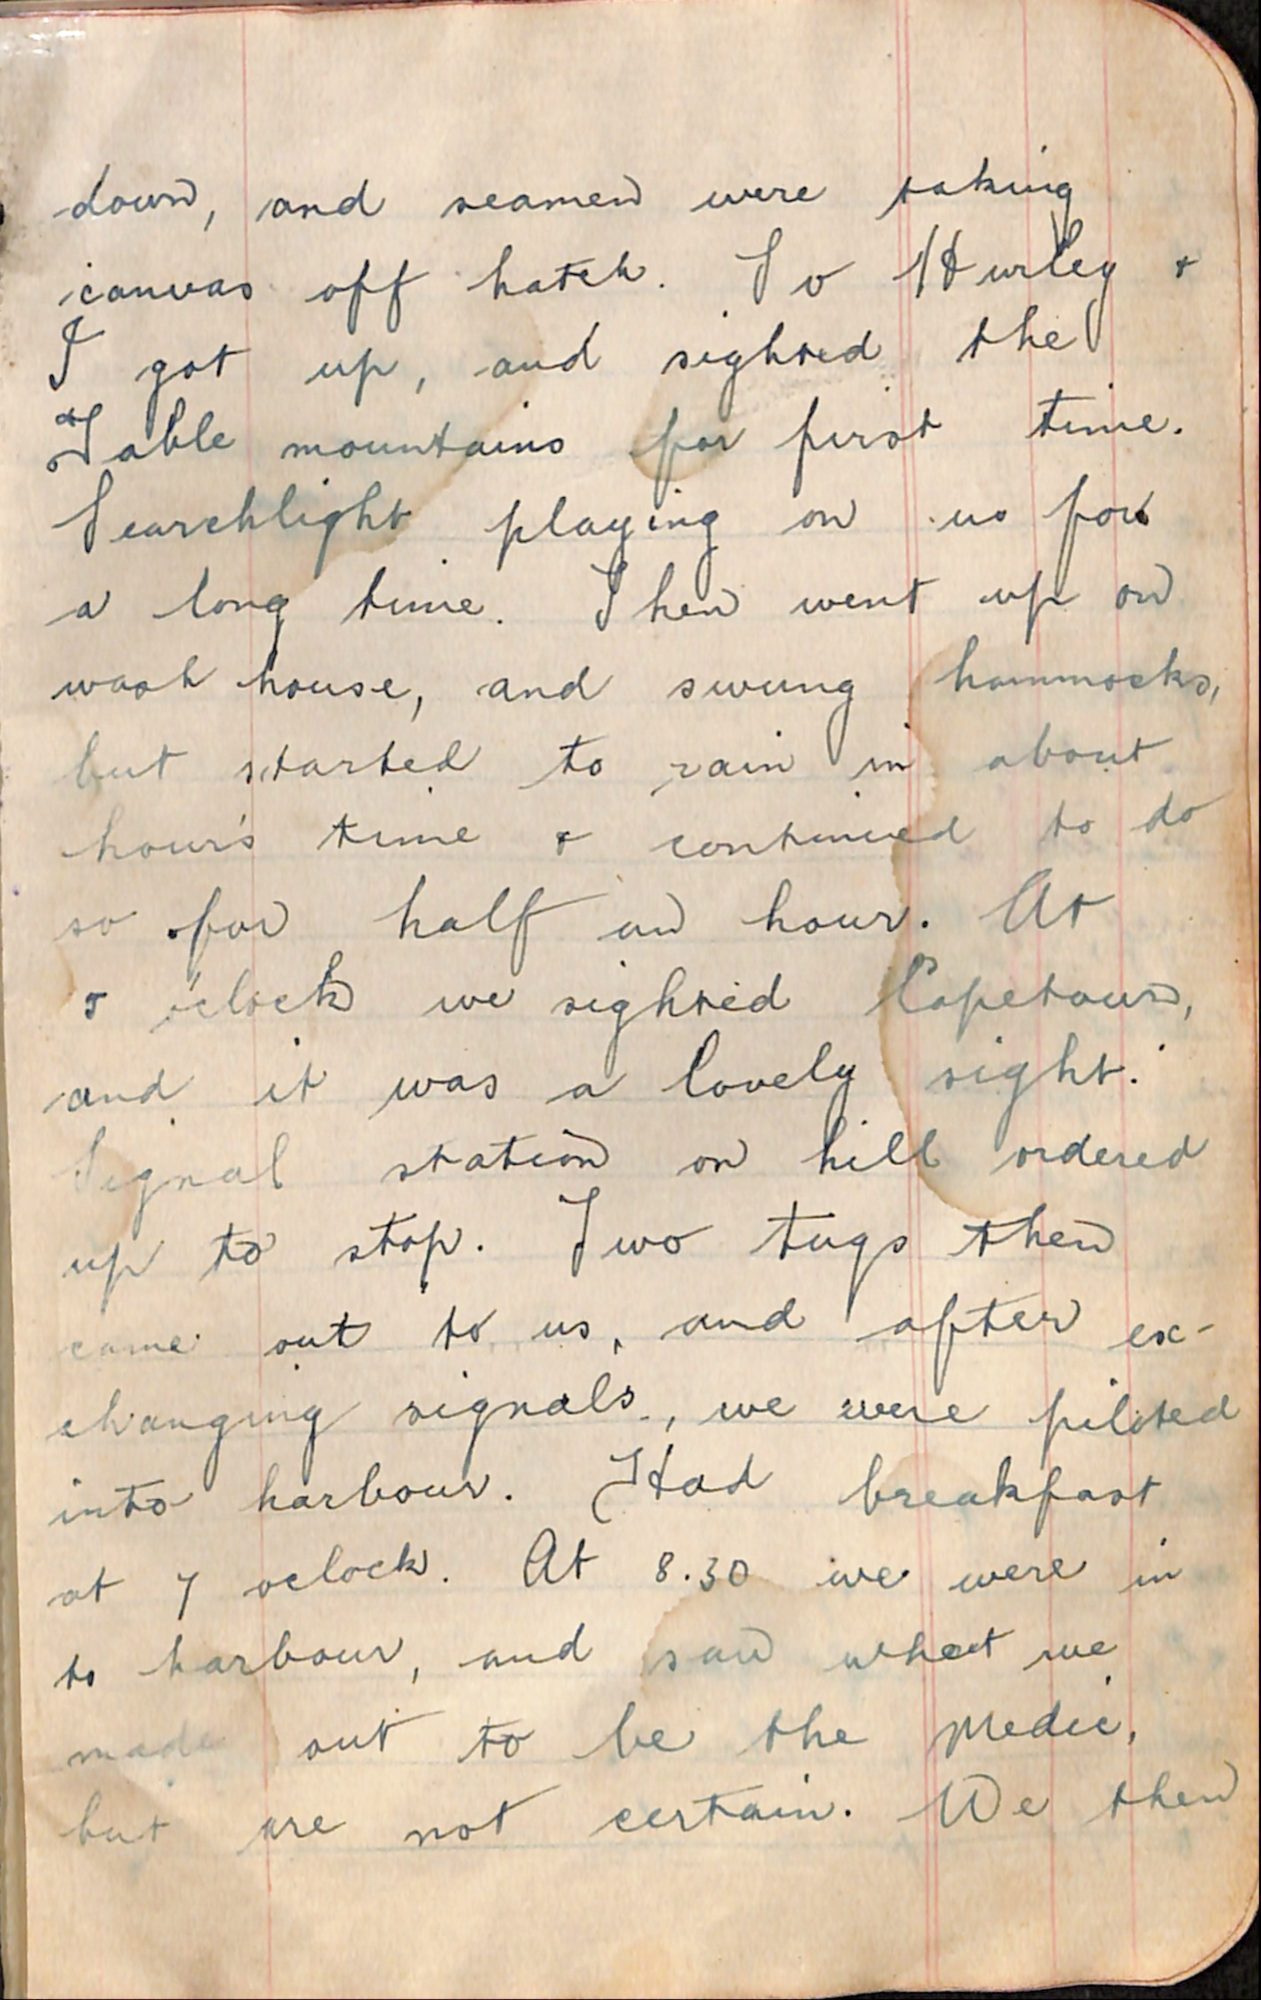 down, and seamen were taking
canvas off hatch. So Hurley &
I got up, and sighted the
Table mountains for first time.
Searchlight playing on us for
a long time. Then went up on
wash house, and swung hammocks,
but started to rain in about
hour's time & continued to do
so for half an hour. At
5 o'clock we sighted Capetown,
and it was a lovely sight.
Signal station on hill ordered
up to stop. Two tugs then
came out to us, and after ex-
changing signals, we were piloted
into harbour. Had breakfast
at 7 oclock. At 8.30 we were in
to harbour, and saw what we
made out to be the Medic,
but are not certain. We then